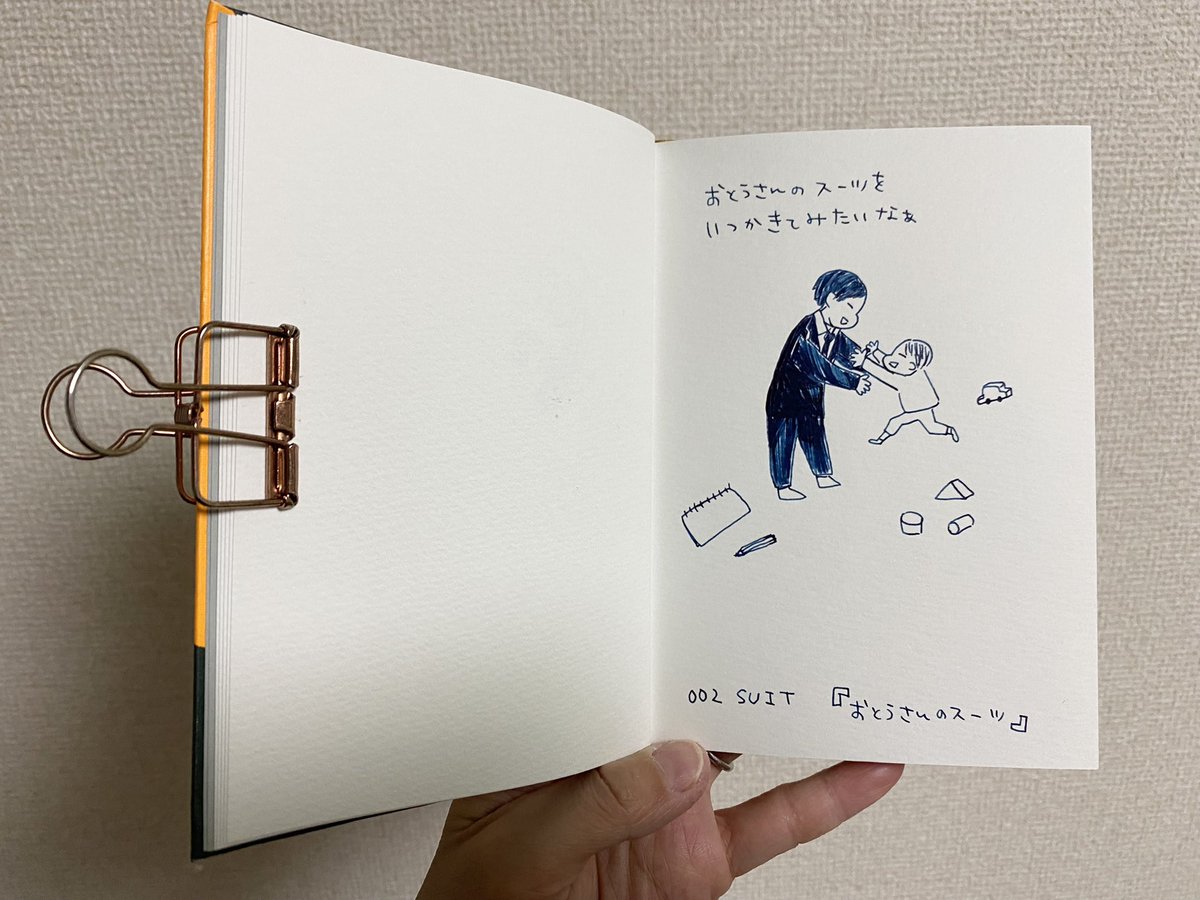 おとうさんのスーツを
いつかきてみたいなぁ
002 SUIT 『おとうさんのスーツ』